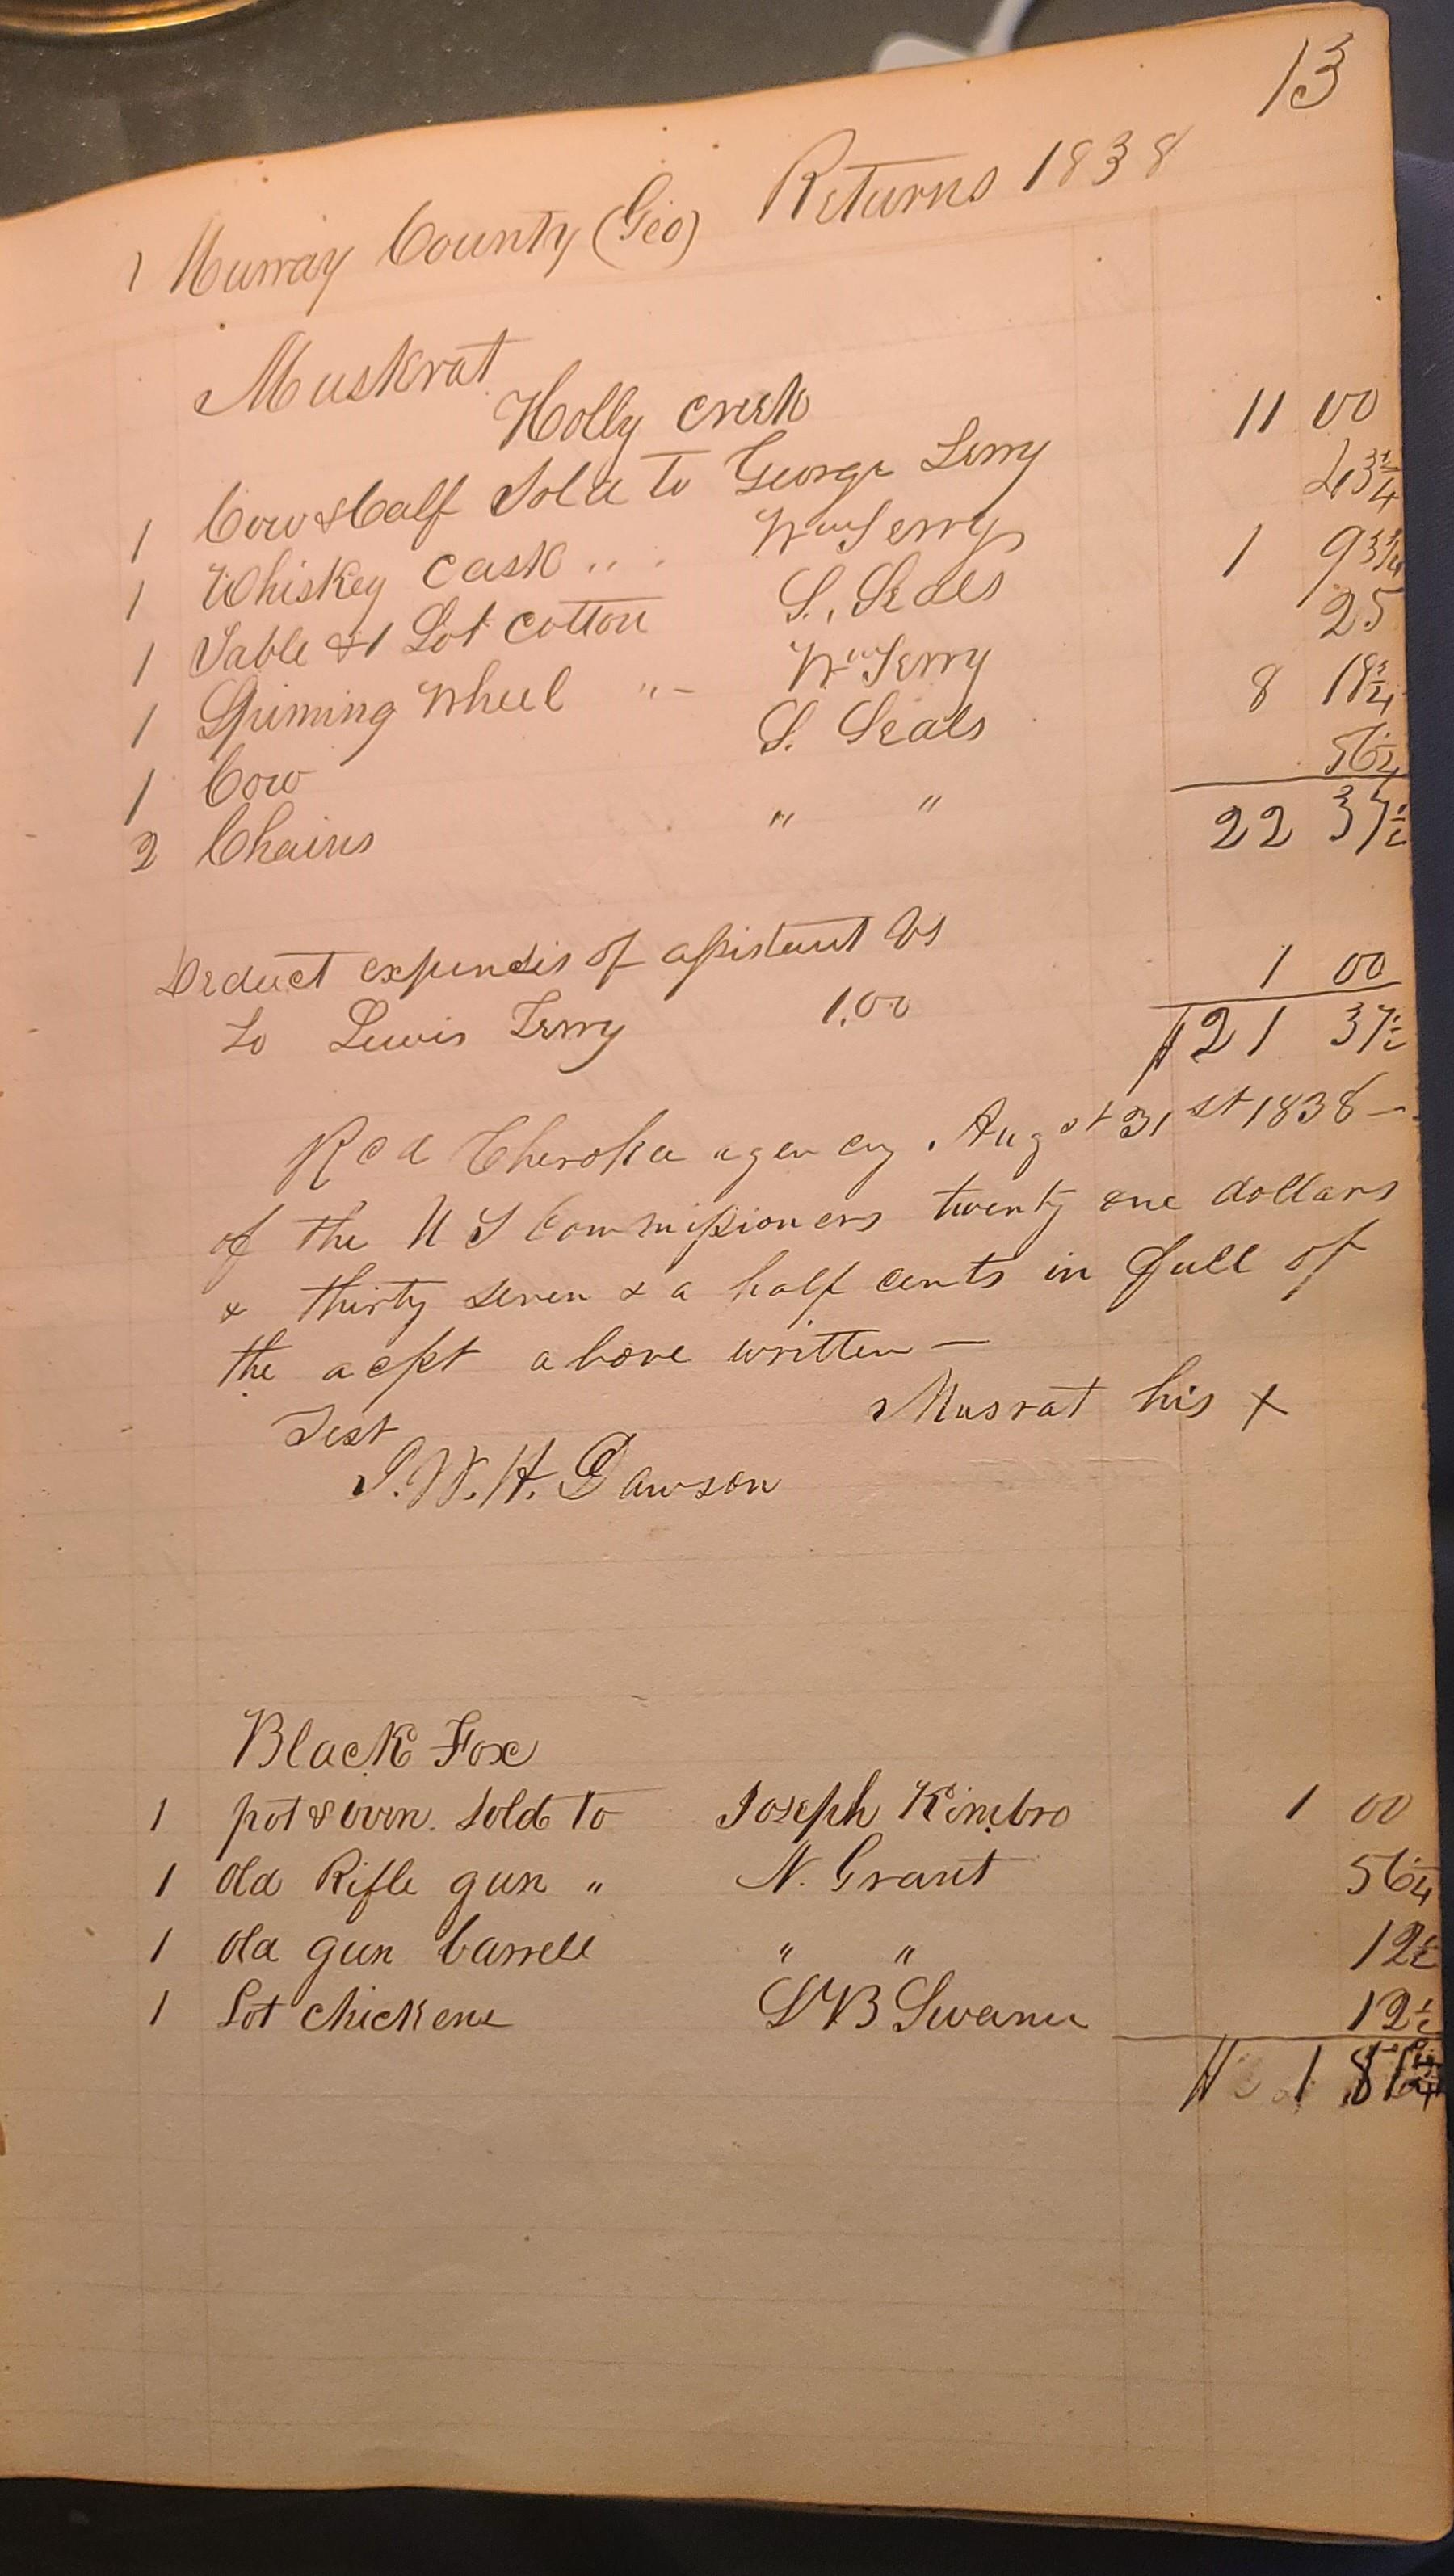 13
1 Murray County (Geo) Returns 1838
Muskrat
Holly creek
1 Cow & Calf Sold to George Terry 11 00
1 Whiskey cask " " Wm Terry 43 3/4
1 Table & 1 Lot cotton S. Seals 1 93 3/4
1 Spinning Wheel " - Wm Terry 25
1 Cow S. Seals 8 18 3/4
2 Chairs " " 56 1/4
22 37 1/2
Deduct expensis of assistant
to Lewis Terry 1.00 1 00
$21 37 1/2
Rcd Cherokee agency. August 31st 1838 —
of the U S Commissioners twenty one dollars
& thirty seven & a half cents in full of
the acpt above written —
Musrat his X
Test
J. W. H. Dawson
Black Fox
1 pot & oven. Sold to Joseph Kimbro 1 00
1 old Rifle gun " N. Grant 56 1/4
1 old gun barrell " " 12 1/2
1 Lot chickens 12 1/2
$ 1 81 1/4